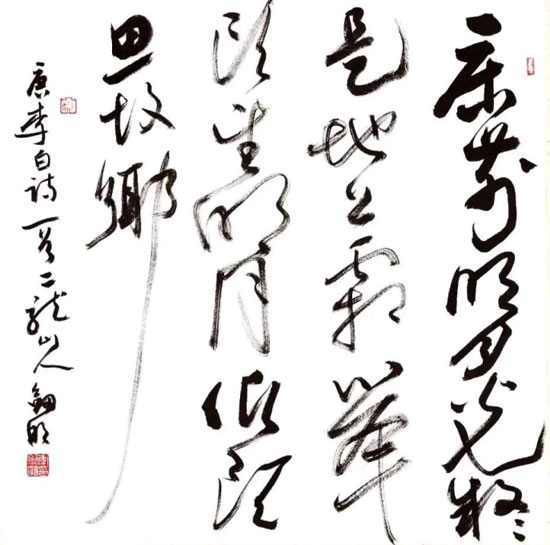 床前明月光疑
是地上霜舉
頭望明月低頭
思故鄉
唐李白詩一首二龍山人明